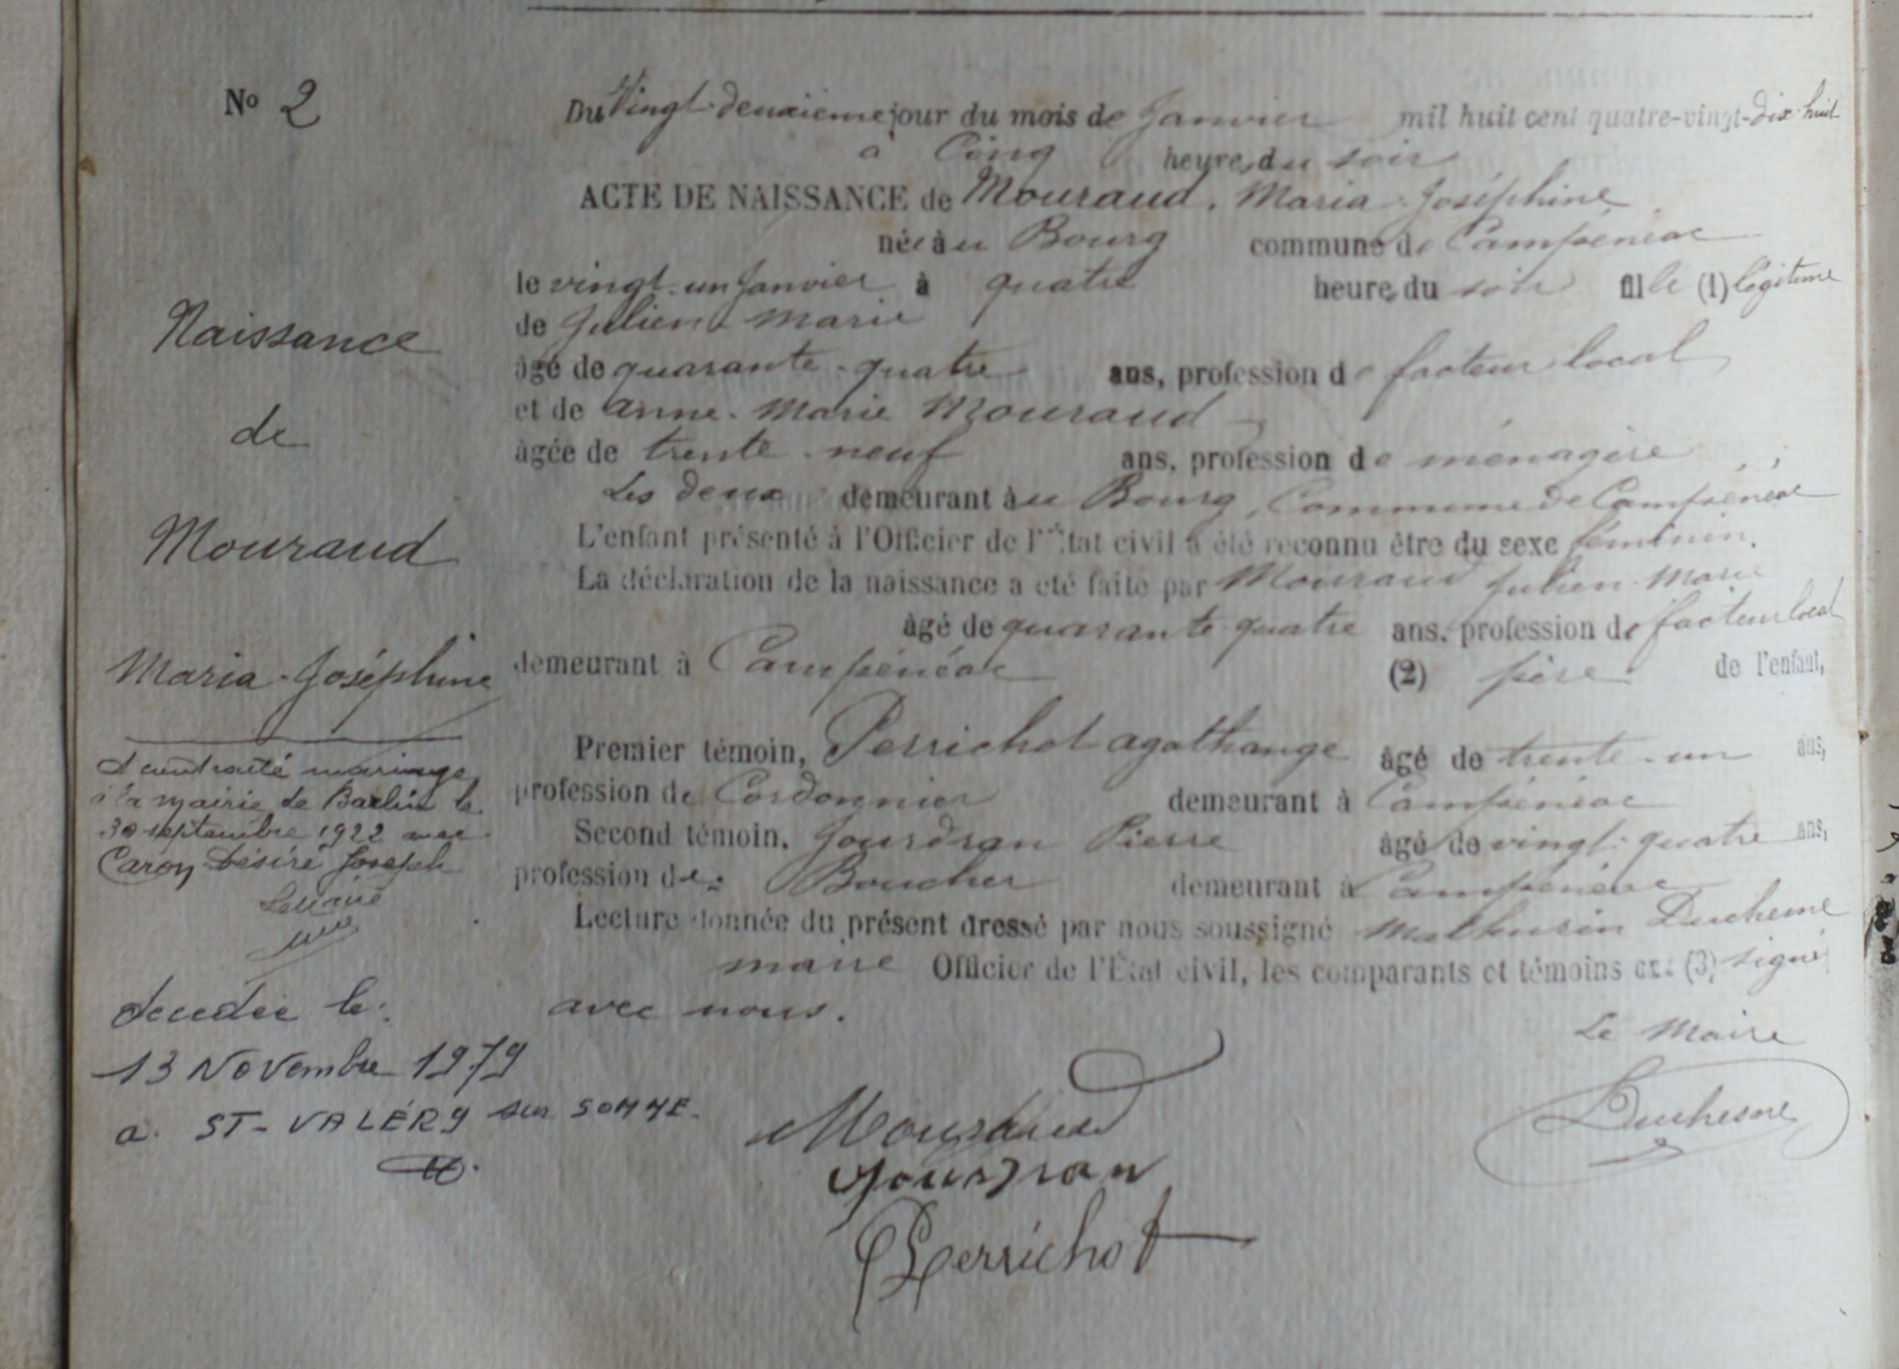 No 2
Du Vingt-deuxième jour du mois de Janvier mil huit cent quatre-vingt-dix-huit
à Cinq heures du soir
ACTE DE NAISSANCE de Mouraud, Maria-Joséphine
née au Bourg commune de Campénéac
le vingt-un Janvier à quatre heure du soir fille (1) légitime
de Julien-Marie
âgé de quarante-quatre ans, profession de facteur local
et de Anne-Marie Mouraud
âgée de trente-neuf ans, profession de ménagère
Les deux demeurant au Bourg, Commune de Campénéac
L'enfant présenté à l'Officier de l'État civil a été reconnu être du sexe féminin.
La déclaration de la naissance a été faite par Mouraud Julien-Marie
âgé de quarante-quatre ans, profession de facteur local
demeurant à Campénéac (2) père de l'enfant,
Premier témoin, Perrichot Agathange âgé de trente-un ans,
profession de Cordonnier demeurant à Campénéac
Second témoin, Jourdran Pierre âgé de vingt-quatre ans,
profession de Boucher demeurant à Campénéac
Lecture donnée du présent dressé par nous soussigné Mathurin Duchesne
maire Officier de l'État civil, les comparants et témoins ont (3) signé
avec nous.
Le Maire
Duchesne
Mouraud
Jourdran
Perrichot
Naissance
de
Mouraud
Maria-Joséphine
A contracté mariage
à la mairie de Barlin le
30 septembre 1922 avec
Caron Désiré Joseph
Le maire
décédée le:
13 Novembre 1979
a ST-VALÉRY sur SOMME.